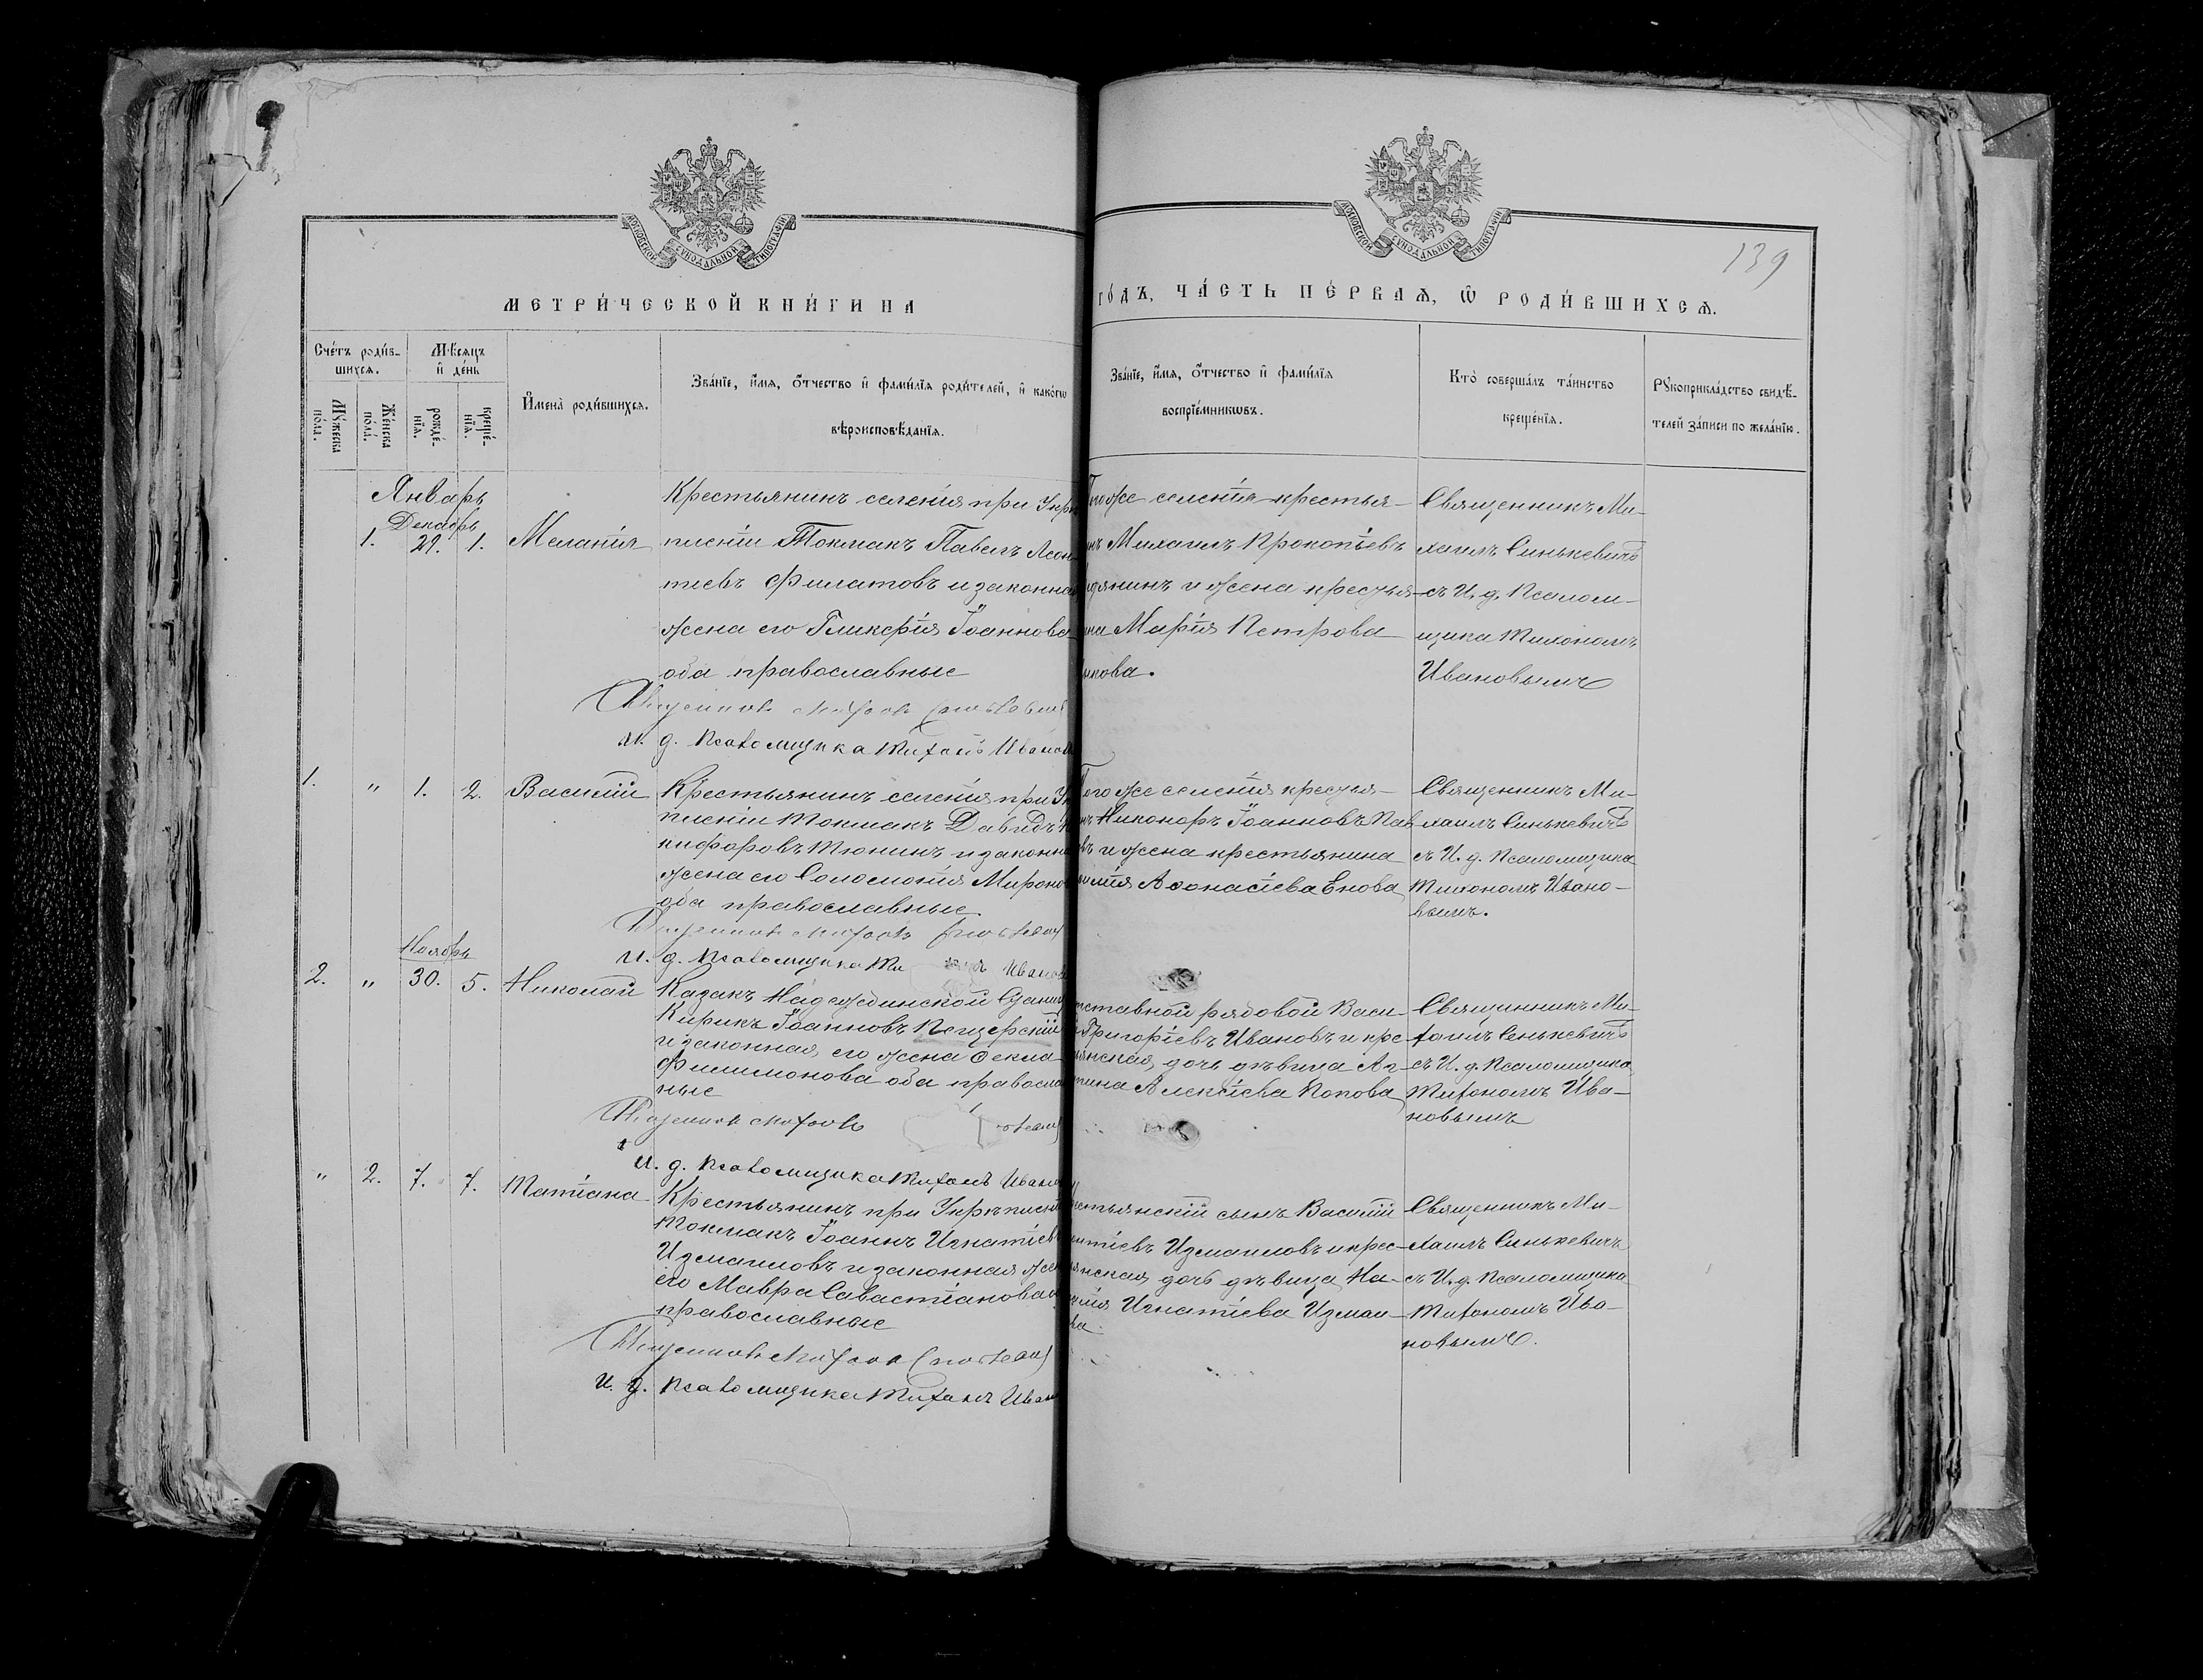 139
МОСКОВСКОЙ СѴНОДАЛЬНОЙ ТИПОГРАФІИ
МОСКОВСКОЙ СѴНОДАЛЬНОЙ ТИПОГРАФІИ
МЕТРИ́ЧЕСКОЙ КНИ́ГИ НА
ГО́ДЪ, ЧА́СТЬ ПЕ́РВАѦ, Ѡ҆ РОДИ́ВШИХСѦ.
Сче́тъ роди́в-
шихсѧ.
Мѣ́сяцъ
и҆ де́нь
Мꙋ́жеска
по́ла.
Же́нска
по́ла.
рожде́-
нїѧ.
креще́-
нїѧ.
И҆мена̀ роди́вшихсѧ.
Зва́нїе, и҆́мѧ, ѻ҆́тчество и҆ фами́лїѧ роди́телей, и҆ како́гѡ
вѣроисповѣ́данїѧ.
Зва́нїе, и҆́мѧ, ѻ҆́тчество и҆ фами́лїѧ
воспрїе́мникѡвъ.
Кто̀ соверша́лъ та́инство
креще́нїѧ.
Рꙋкоприкла́дство свидѣ́-
телей за́писи по жела́нїю.
Январь
Декабрь
1. 29. 1. Меланія
Крестьянинъ селенія при Укрѣ
пленіи Токмакъ Павелъ Леон
тіевъ Филатовъ и законная
жена его Гликерія Іоаннова
оба православные
Того же селенія крестья-
нъ Михаилъ Прокопіевъ
и жена крестья-
на Марія Петрова
Священникъ Ми-
хаилъ Синькевичъ
съ И. д. Псалом-
щика Тихономъ
Ивановымъ
Священникъ
и. д. Псаломщика Тихонъ Иванов
1. " 1. 2. Василій
Крестьянинъ селенія при Ук
пленіи Токмакъ Давидъ Н
кифоровъ Тюнинъ и законна
жена его Соломонія Миронов
оба православные.
Того же селенія крестья-
нъ Никоноръ Іоанновъ Пав
въ и жена крестьянина
Афонасіева Енова
Священникъ Ми-
хаилъ Синькевичъ
съ И. д. Псаломщика
Тихономъ Ивано-
вымъ.
Священникъ
И. д. Псаломщика Ти Иванов
Ноябрь
2. " 30. 5. Николай
Казакъ Надеждинской Стани
Кирикъ Іоанновъ Пещерскій
и законная его жена Фекла
Филимонова оба правосла
ные
отставной рядовой Васи-
Григоріевъ Ивановъ и кре
янская дочь дѣвица Аг-
Алексіева Попова
Священникъ Ми-
хаилъ Сенькевичъ
съ И. д. Псаломщика
Тихономъ Ива-
новымъ
Священникъ
И. д. Псаломщика Тихонъ Иванов
" 2. 7. 7. Татіана
Крестьянинъ при Укрѣплені
Токмакъ Іоаннъ Игнатіев
Измаиловъ и законная жен
его Мавра Савастіанова о
православные
стьянскій сынъ Василій
натіевъ Измаиловъ и крес-
янская дочь дѣвица На-
Игнатіева Измаи-
ва
Священникъ Ми-
хаилъ Синькевичъ
съ И. д. Псаломщика
Тихономъ Ива-
новымъ.
Священникъ
и. д. Псаломщика Тихонъ Иван